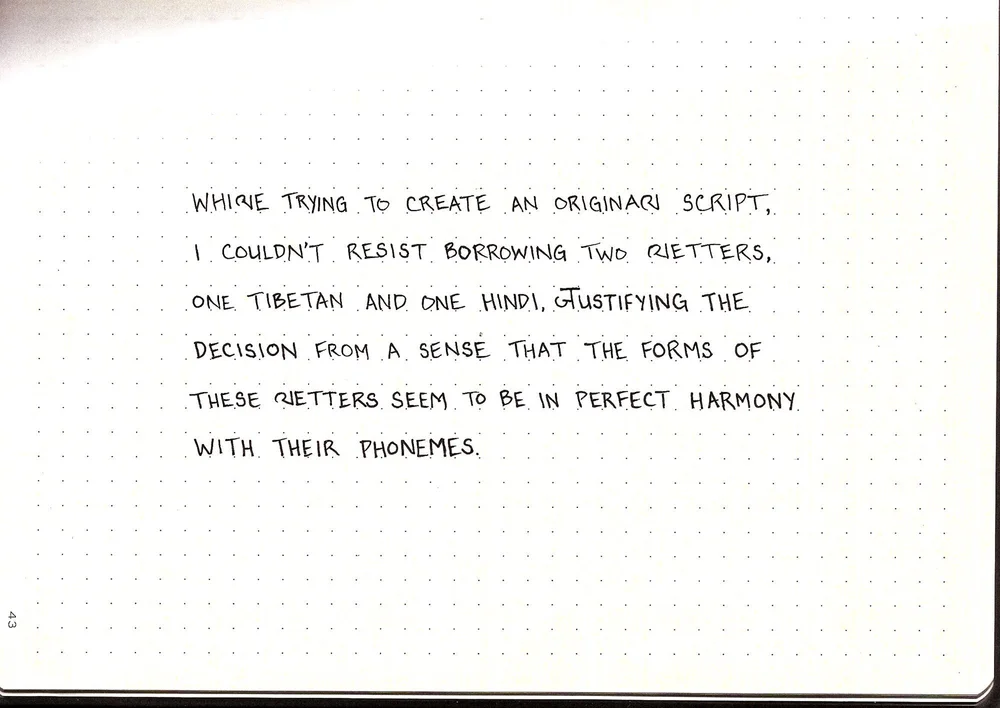 WHIལE TRYING TO CREATE AN ORIGINAལ SCRIPT,
I COULDN'T RESIST BORROWING TWO ལETTERS,
ONE TIBETAN AND ONE HINDI, जUSTIFYING THE
DECISION FROM A SENSE THAT THE FORMS OF
THESE ལETTERS SEEM TO BE IN PERFECT HARMONY
WITH THEIR PHONEMES.
43